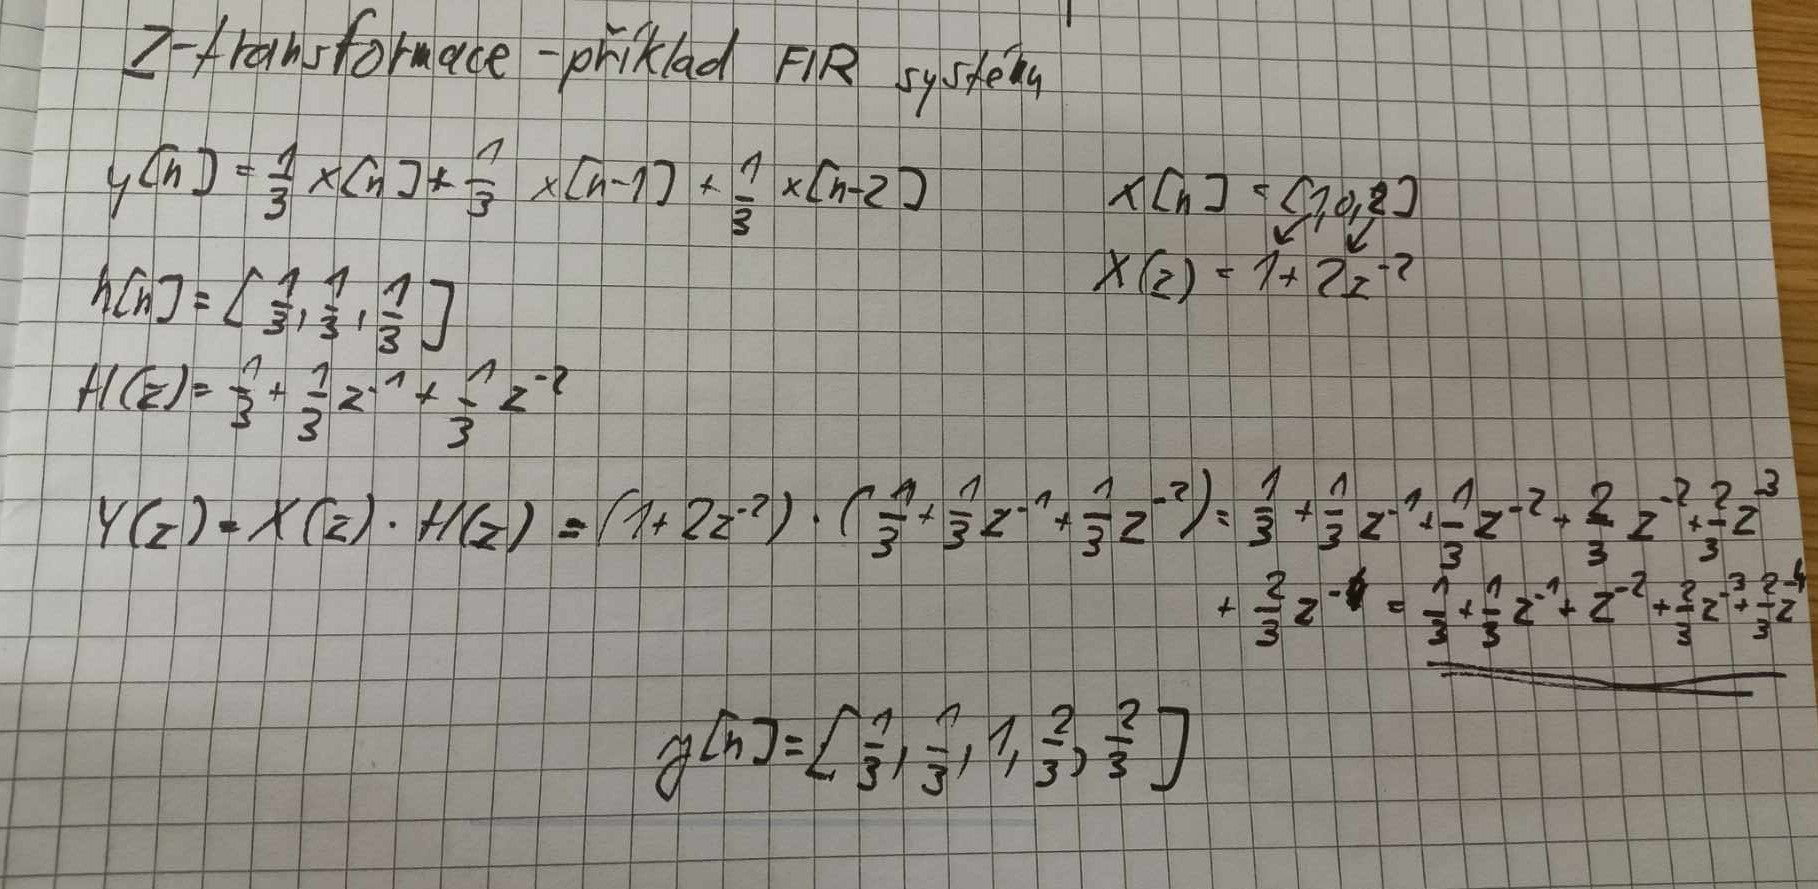 Z-transformace - příklad FIR systému
y[n] = 1/3 x[n] + 1/3 x[n-1] + 1/3 x[n-2]
x[n] = [1,0,2]
X(z) = 1 + 2z^-2
h[n] = [1/3, 1/3, 1/3]
H(z) = 1/3 + 1/3 z^-1 + 1/3 z^-2
Y(z) = X(z) · H(z) = (1 + 2z^-2) · (1/3 + 1/3 z^-1 + 1/3 z^-2) = 1/3 + 1/3 z^-1 + 1/3 z^-2 + 2/3 z^-2 + 2/3 z^-3
+ 2/3 z^-4 = 1/3 + 1/3 z^-1 + z^-2 + 2/3 z^-3 + 2/3 z^-4
y[n] = [1/3, 1/3, 1, 2/3, 2/3]